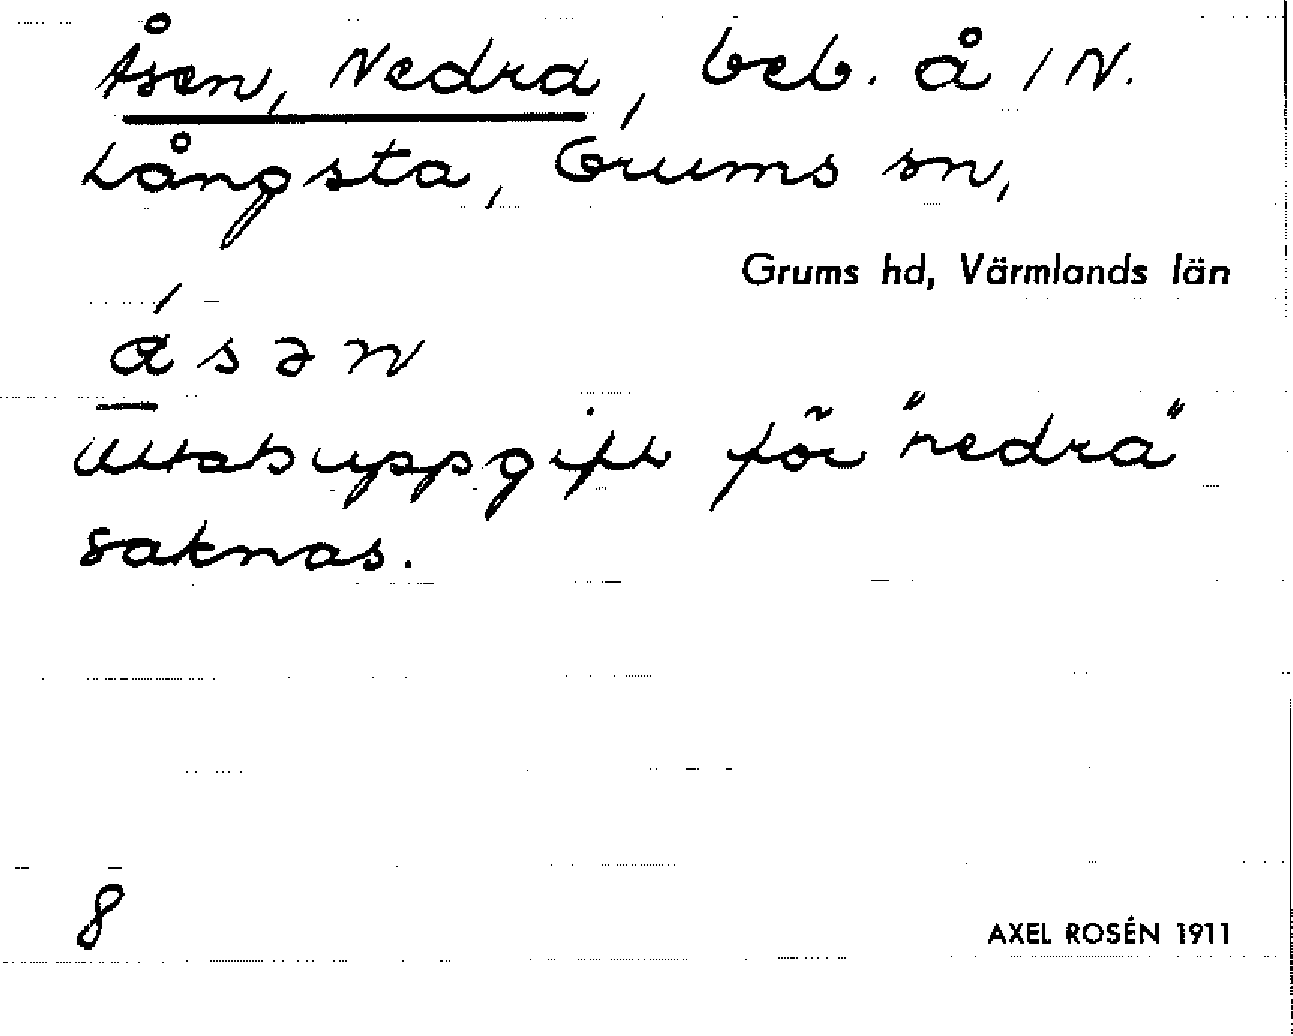 Åsen, Nedra, beb. å 1 N.
Långsta, Grums sn,
Grums hd, Värmlands län
ásən
Uttalsuppgift för "nedra"
saknas.
8
AXEL ROSÉN 1911